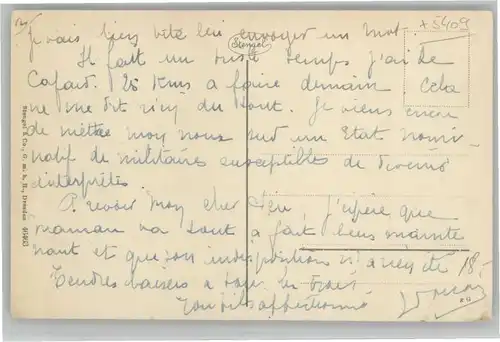 Je vais bien vite leur envoyer un mot.
Il fait un triste temps j'ai le
Cafard. 25 Kms a faire demain. Cela
ne me dit rien du tout. Je viens encore
de mettre mon nom sur un Etat nomi-
natif de militaires susceptibles de devenir
interprètes.
A revoir mon cher, j'espère que
maman va tout a fait bien mainte
nant et que son indisposition n'a rien été
Tendres baisers a tous les trois
Ton fils affectionné
Stengel
Stengel & Co., G. m. b. H., Dresden
+5409
18.-